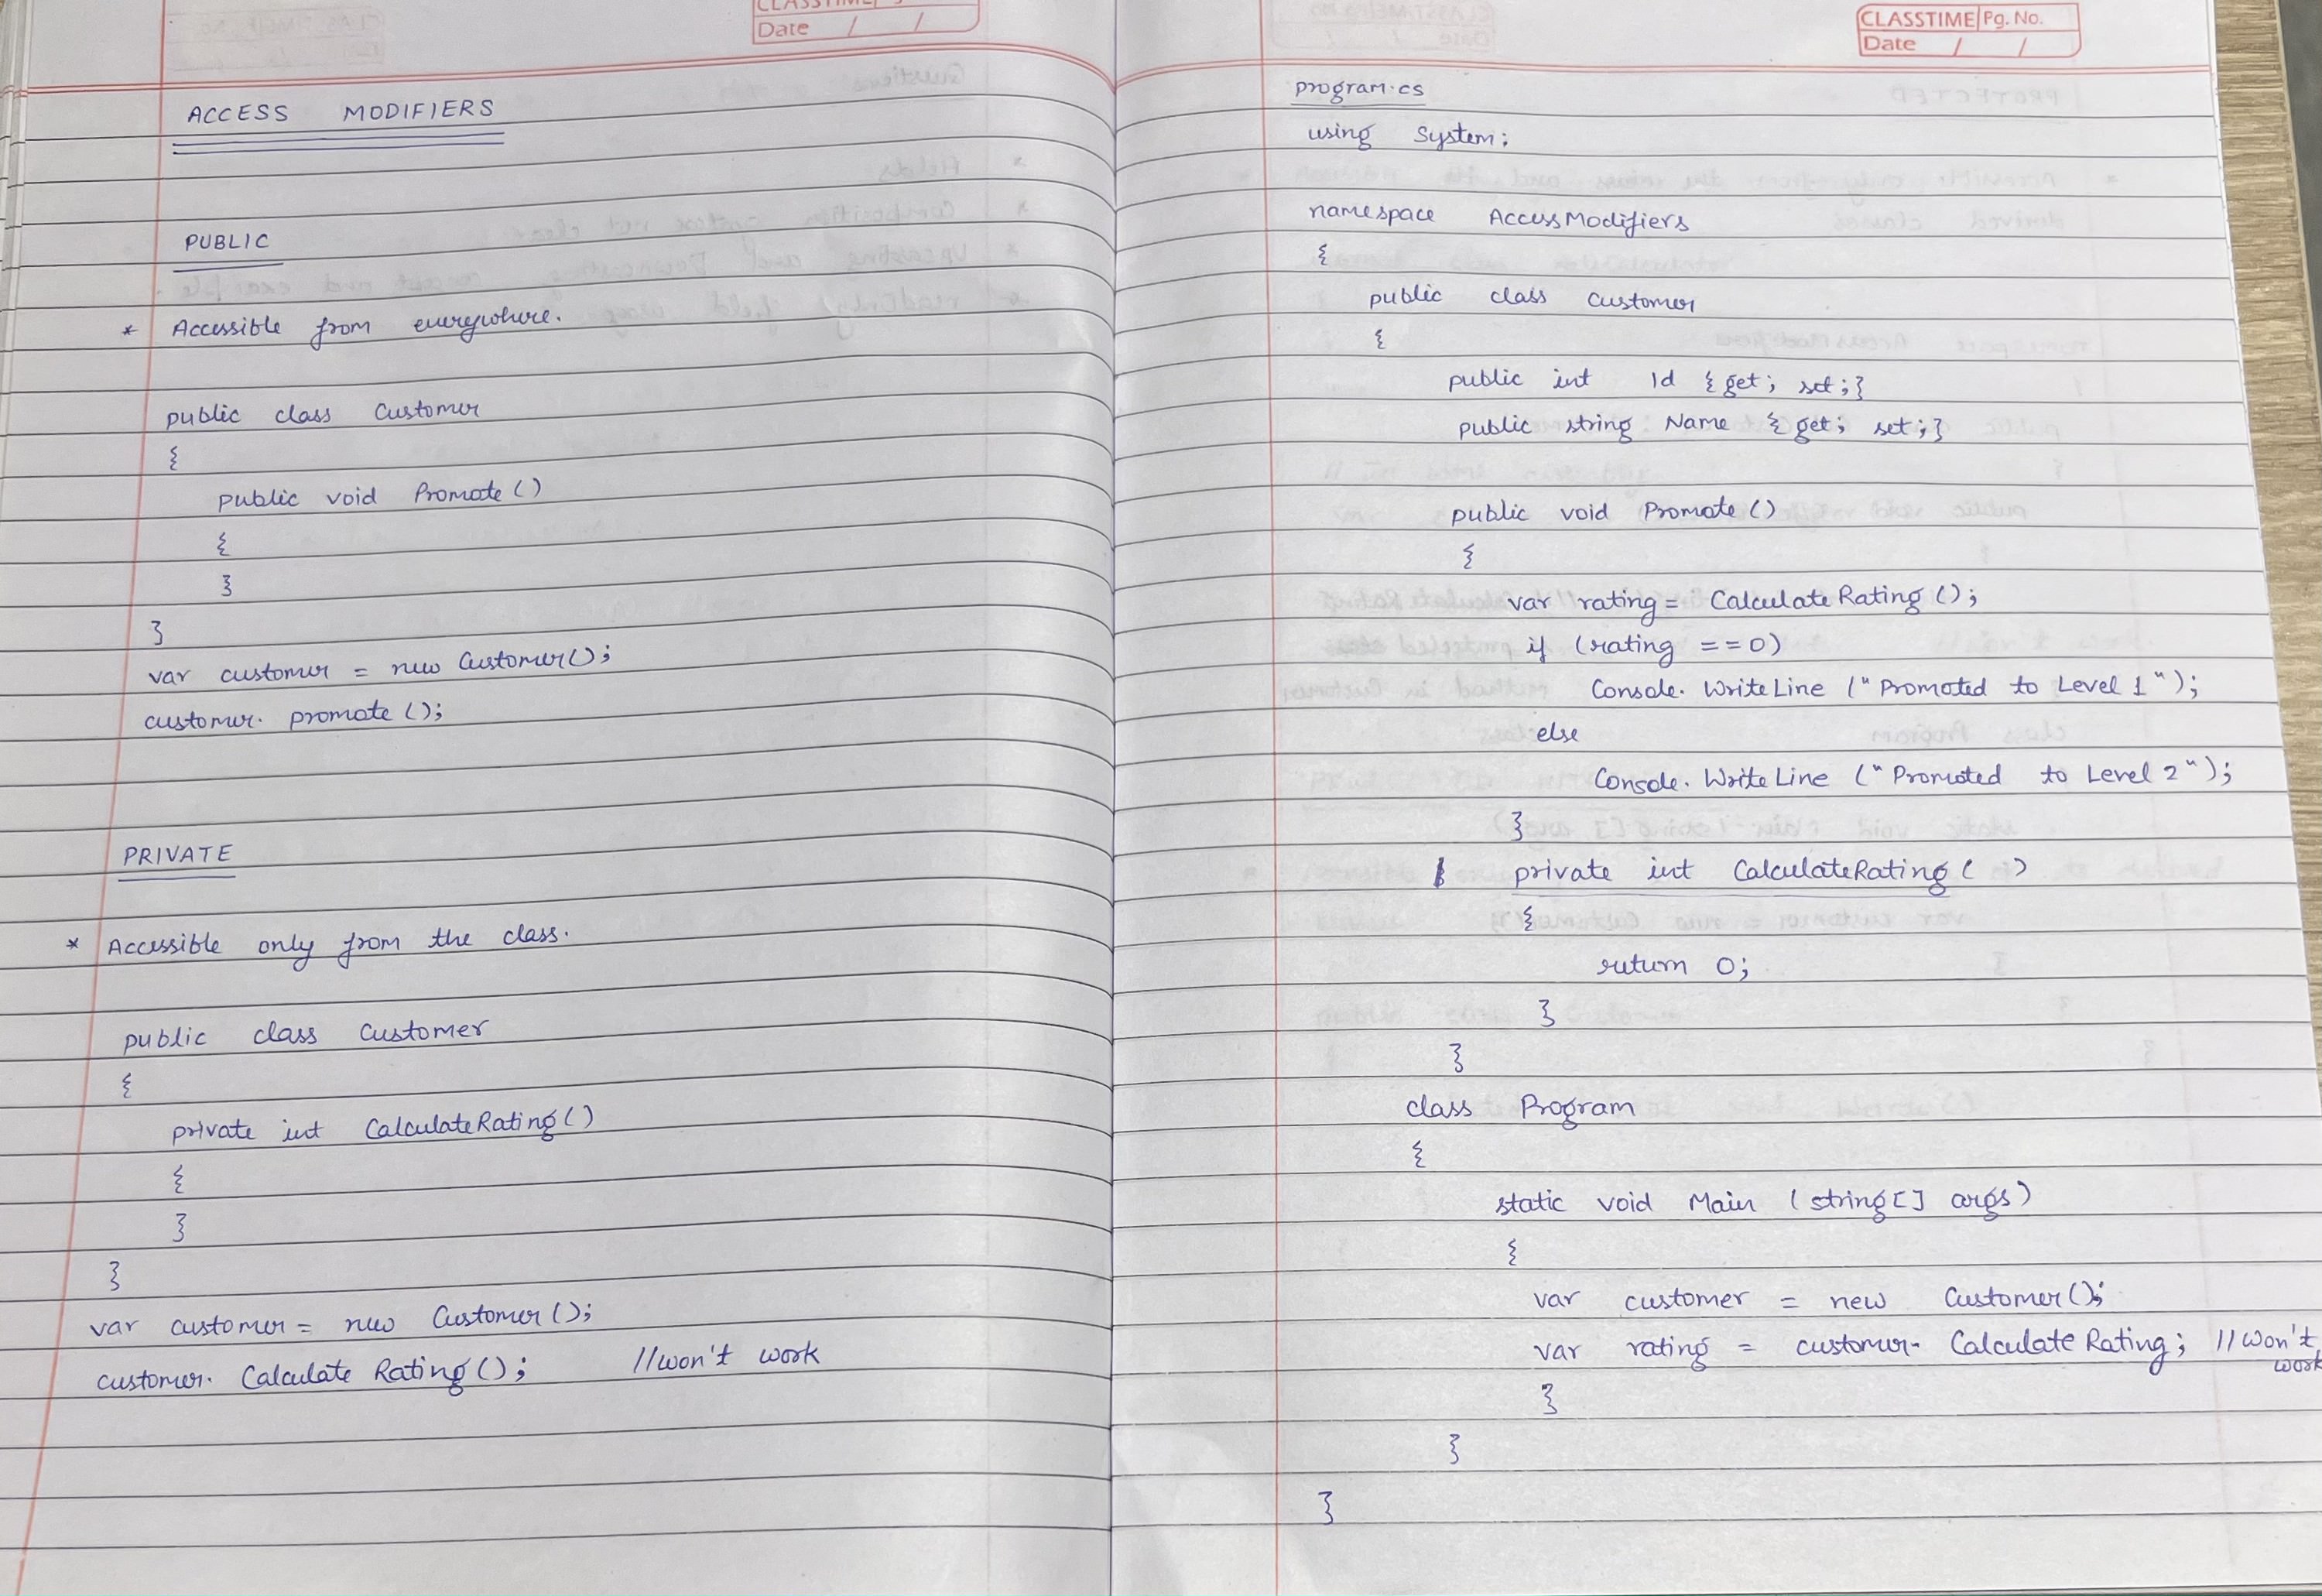 CLASSTIME
Date / /
ACCESS MODIFIERS
PUBLIC
* Accessible from everywhere.
public class Customer
{
public void Promote()
{
}
}
var customer = new Customer();
customer. promote ();
PRIVATE
* Accessible only from the class.
public class Customer
{
private int CalculateRating()
{
}
}
var customer = new Customer();
customer. Calculate Rating(); //won't work
CLASSTIME Pg. No.
Date / /
program.cs
using System;
namespace AccessModifiers
{
public class Customer
{
public int Id {get; set;}
public string Name {get; set;}
public void Promote()
{
var rating = CalculateRating();
if (rating ==0)
Console. WriteLine ("Promoted to Level 1");
else
Console. WriteLine ("Promoted to Level 2");
}
private int CalculateRating( )
{
return 0;
}
}
class Program
{
static void Main (string[] args)
{
var customer = new Customer();
var rating = customer. Calculate Rating; //won't
work
}
}
}